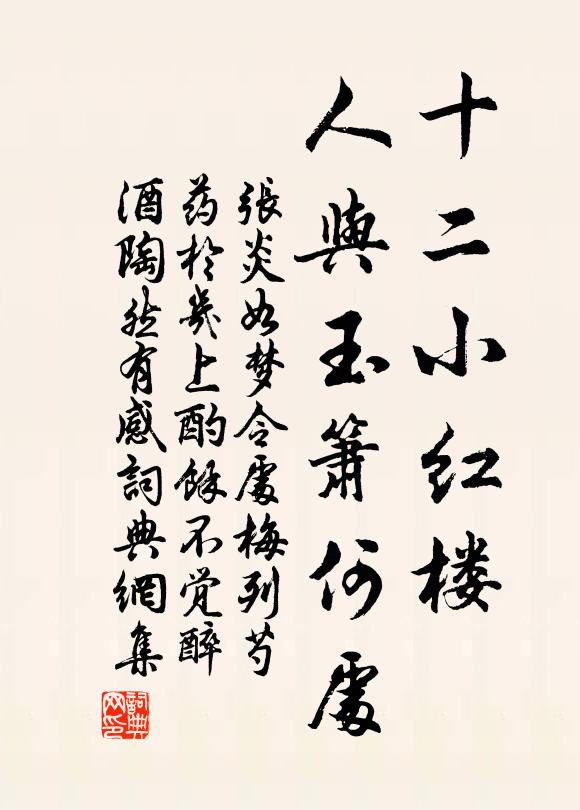 十二小红楼
人與玉簫何處
張炎如梦令處梅列芍
药於幾上酌餘不觉醉
酒陶然有感詞典網集
詞典网印